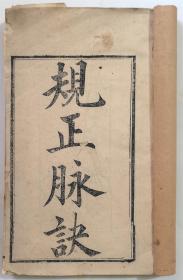 規正脉訣